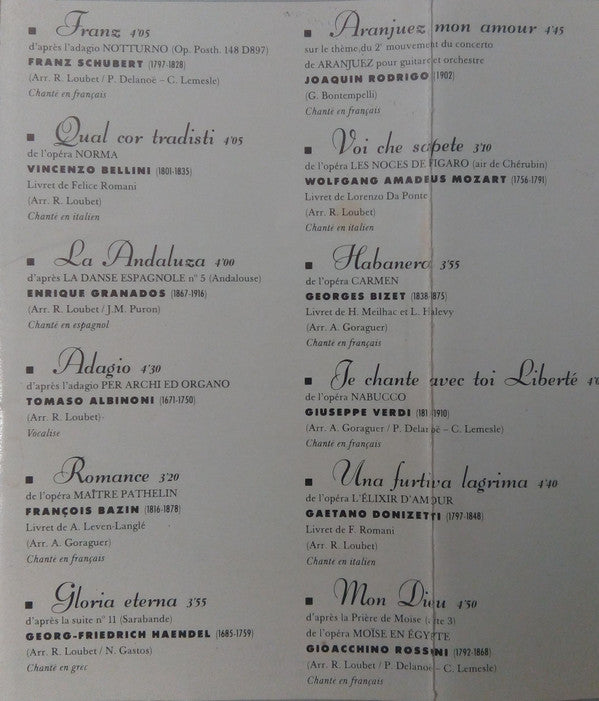 Franz 4'05
d'après l'adagio NOTTURNO (Op. Posth. 148 D897)
FRANZ SCHUBERT (1797-1828)
(Arr. R. Loubet / P. Delanoë – C. Lemesle)
Chanté en français
Qual cor tradisti 4'05
de l'opéra NORMA
VINCENZO BELLINI (1801-1835)
Livret de Felice Romani
(Arr. R. Loubet)
Chanté en italien
La Andaluza 4'00
d'après LA DANSE ESPAGNOLE n° 5 (Andalouse)
ENRIQUE GRANADOS (1867-1916)
(Arr. R. Loubet / J.M. Puron)
Chanté en espagnol
Adagio 4'30
d'après l'adagio PER ARCHI ED ORGANO
TOMASO ALBINONI (1671-1750)
(Arr. R. Loubet)
Vocalise
Romance 3'20
de l'opéra MAÎTRE PATHELIN
FRANÇOIS BAZIN (1816-1878)
Livret de A. Leven-Langlé
(Arr. A. Goraguer)
Chanté en français
Gloria eterna 3'55
d'après la suite n° 11 (Sarabande)
GEORG-FRIEDRICH HAENDEL (1685-1759)
(Arr. R. Loubet / N. Gastos)
Chanté en grec
Aranjuez mon amour 4'45
sur le thème du 2e mouvement du concerto
de ARANJUEZ pour guitare et orchestre
JOAQUIN RODRIGO (1902)
(G. Bontempelli)
Chanté en français
Voi che sapete 3'10
de l'opéra LES NOCES DE FIGARO (air de Chérubin)
WOLFGANG AMADEUS MOZART (1756-1791)
Livret de Lorenzo Da Ponte
(Arr. R. Loubet)
Chanté en italien
Habanera 3'55
de l'opéra CARMEN
GEORGES BIZET (1838-1875)
Livret de H. Meilhac et L. Halevy
(Arr. A. Goraguer)
Chanté en français
Je chante avec toi Liberté
de l'opéra NABUCCO
GIUSEPPE VERDI
(Arr. A. Goraguer / P. Delanoë – C. Lemesle)
Chanté en français
Una furtiva lagrima 4'40
de l'opéra L'ÉLIXIR D'AMOUR
GAETANO DONIZETTI (1797-1848)
Livret de F. Romani
(Arr. R. Loubet)
Chanté en italien
Mon Dieu 4'50
d'après la Prière de Moïse (acte 3)
de l'opéra MOÏSE EN ÉGYPTE
GIOACCHINO ROSSINI (1792-1868)
(Arr. R. Loubet / P. Delanoë – C. Lemesle)
Chanté en français